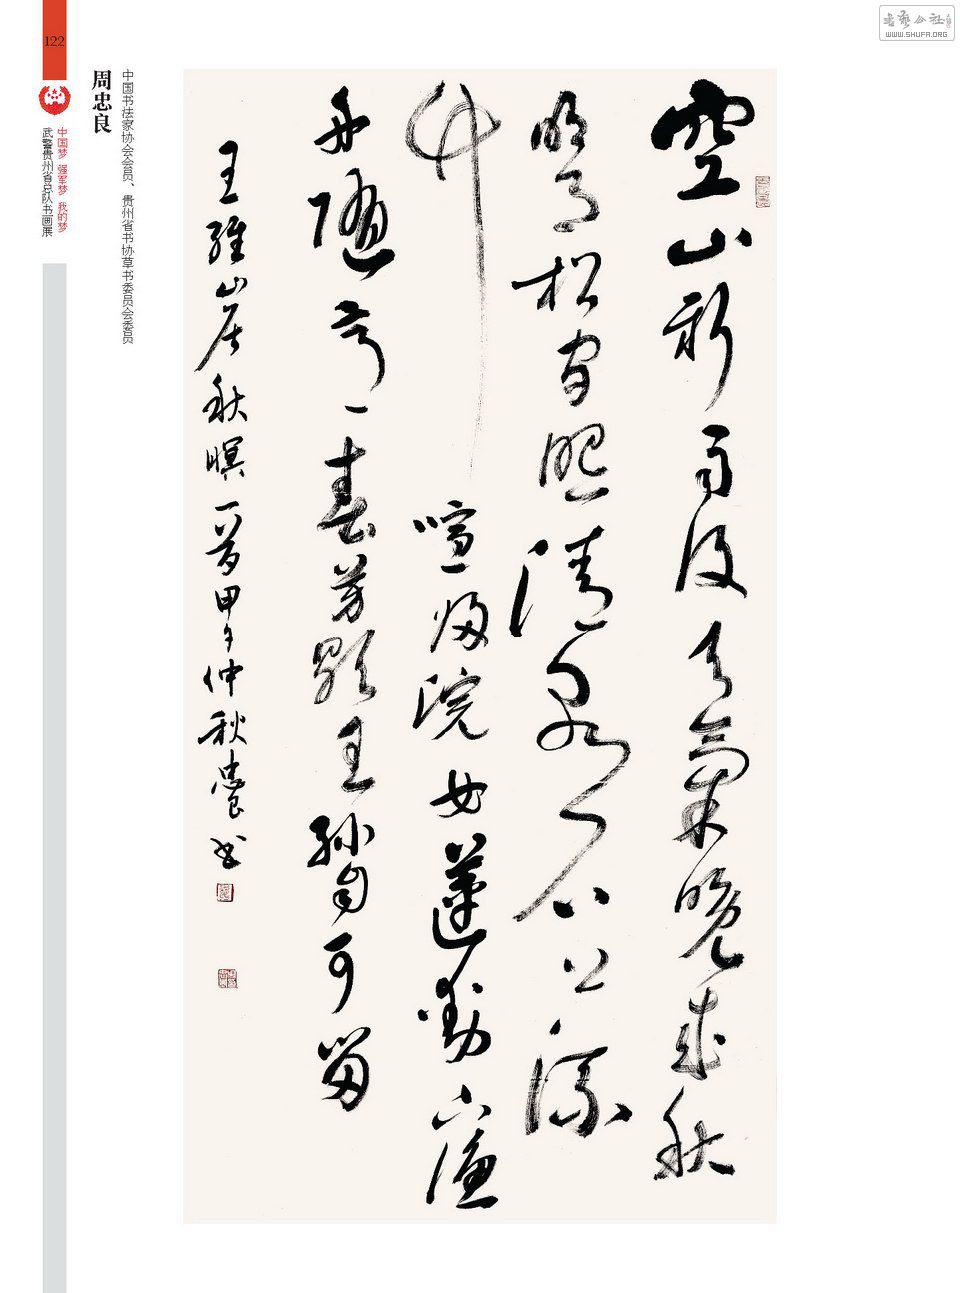 122
書藝公社
WWW.SHUFA.ORG
中国梦 强军梦 我的梦
武警贵州省总队书画展
周忠良
中国书法家协会会员、贵州省书协草书委员会委员
空山新雨後天氣晚來秋
明月松間照清泉石上流
竹喧歸浣女蓮動下漁
舟隨意春芳歇王孫自可留
王維山居秋暝一首甲午仲秋忠良书